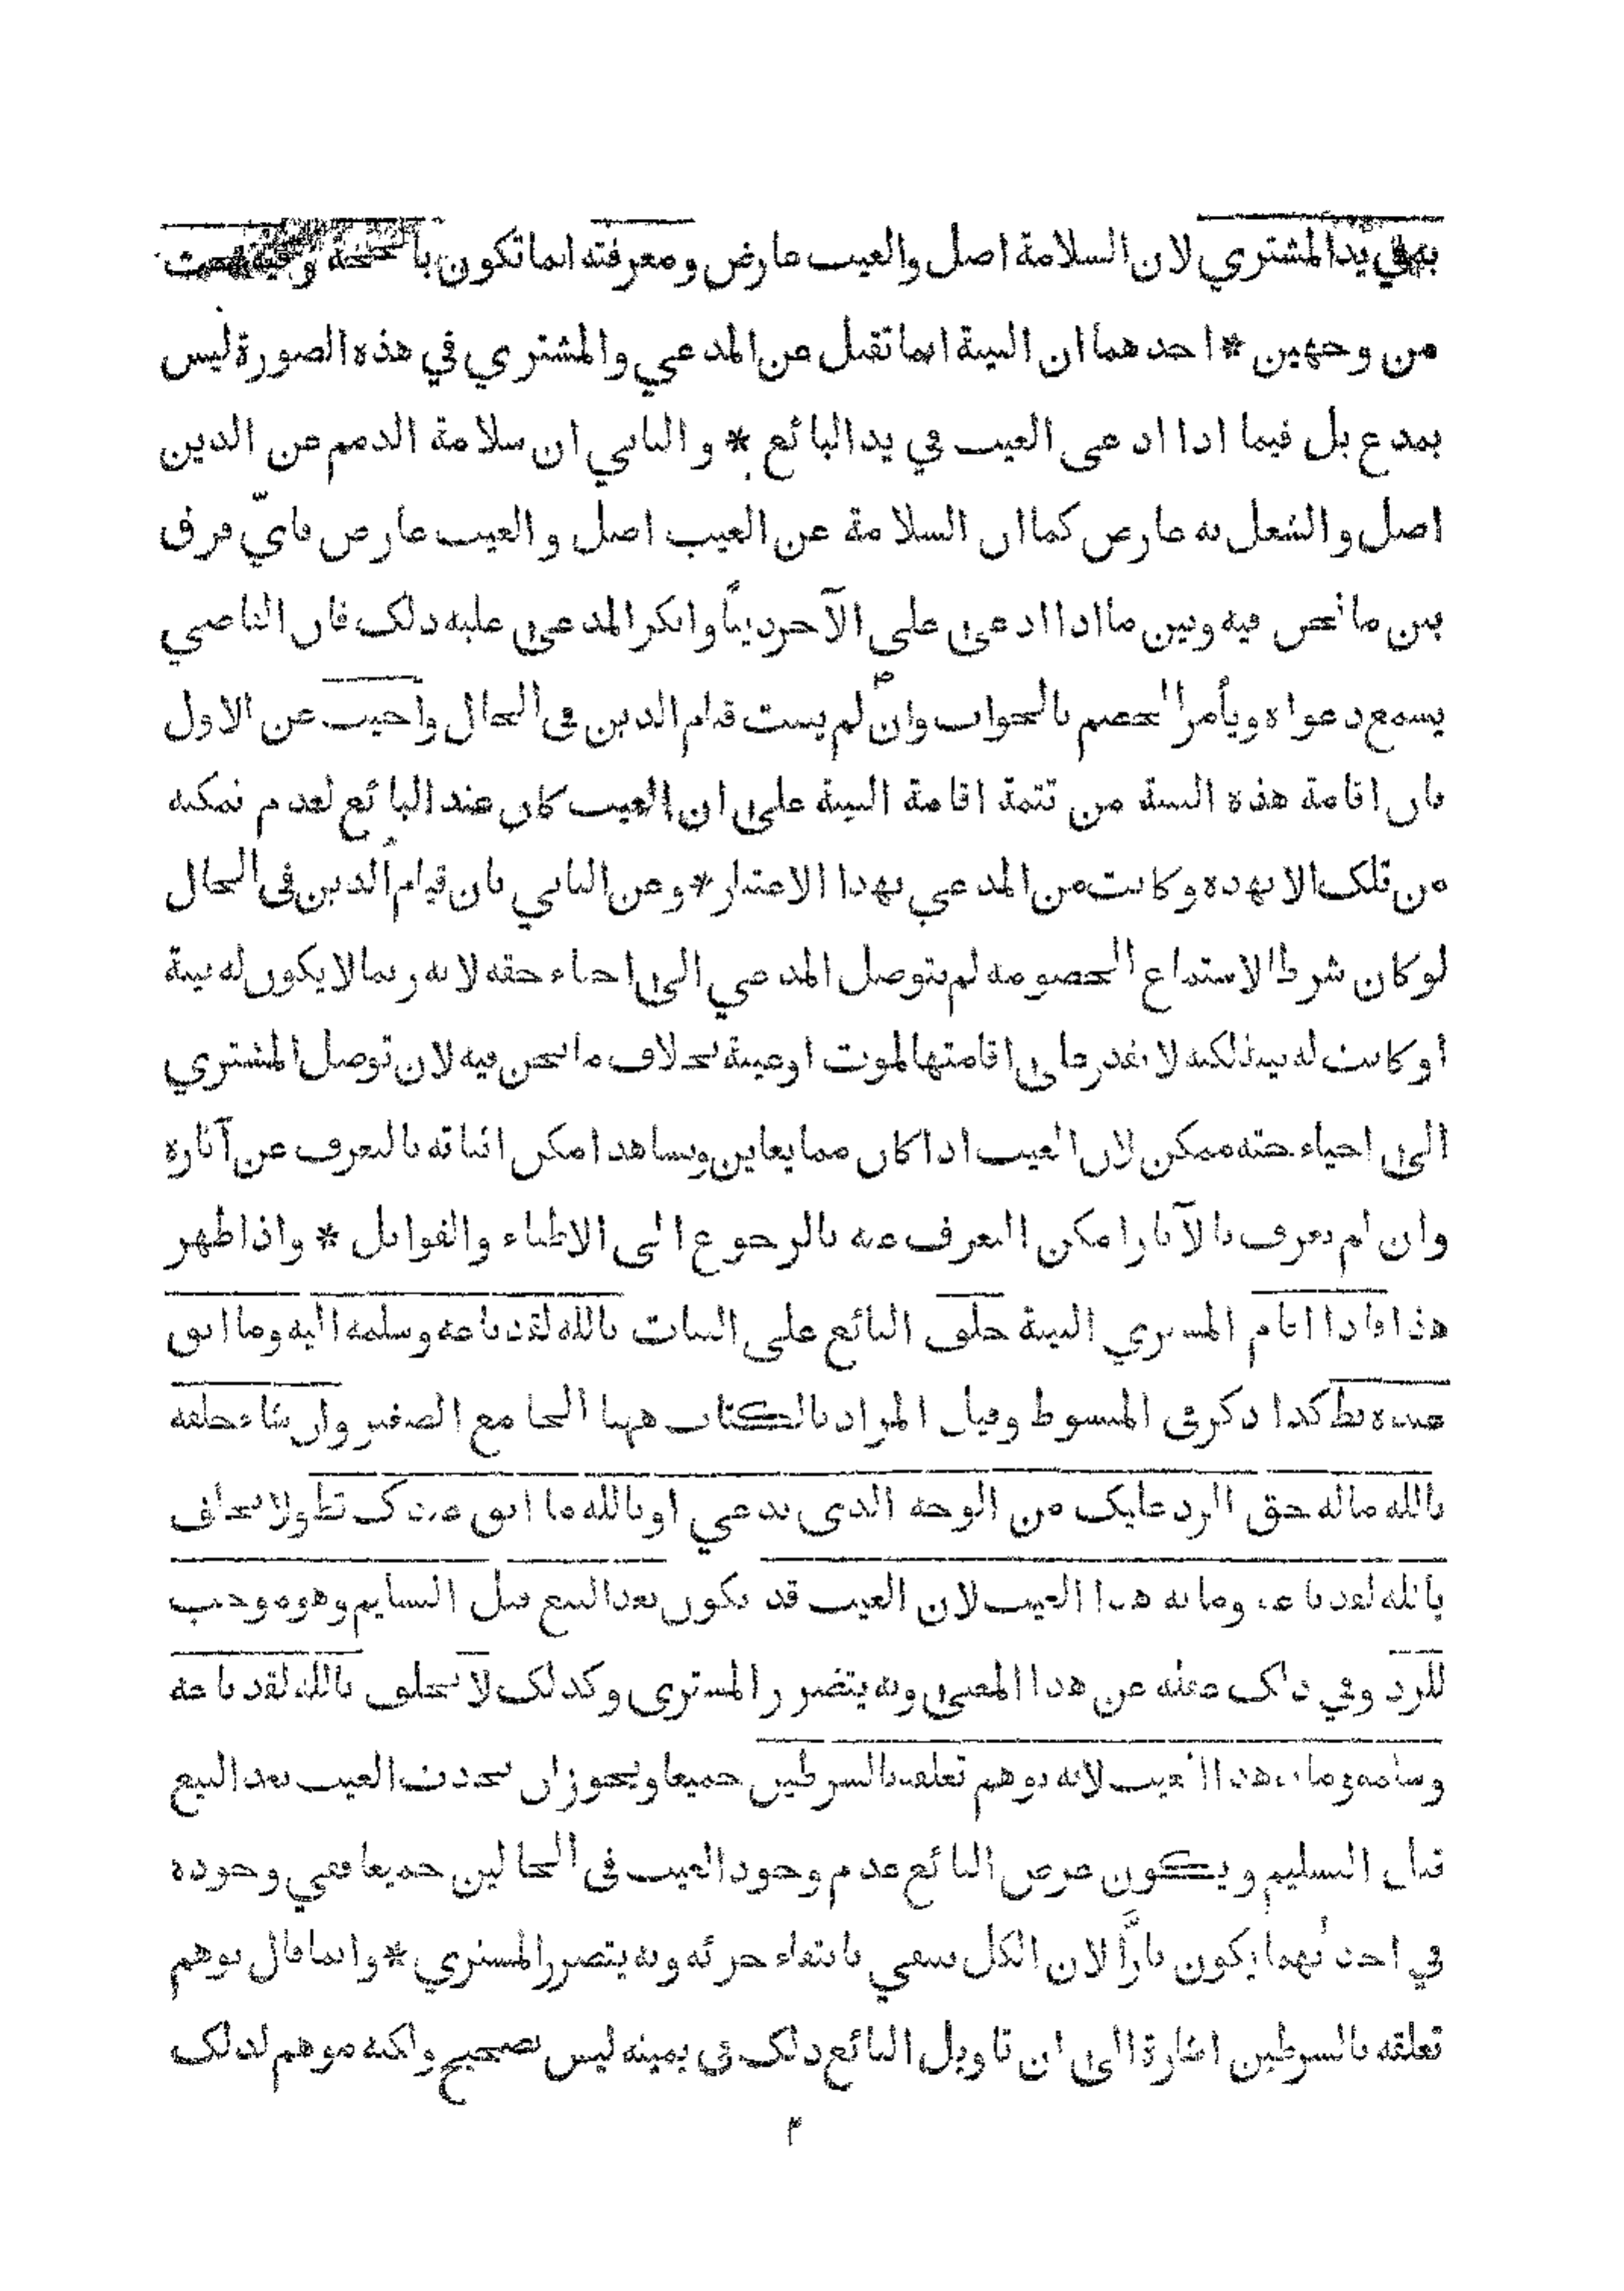 به في يد المشتري لان السلامة اصل والعيب عارض ومعرفته انما تكون بالحجة وفيه بحث
من وجهين * احدهما ان البينة انما تقبل من المدعي والمشتري في هذه الصورة ليس
بمدع بل فيما اذا ادعى العيب في يد البائع * والثاني ان سلامة الذمم عن الدين
اصل والشغل به عارض كما ان السلامة عن العيب اصل والعيب عارض فايّ فرق
بين ما نحن فيه وبين ما اذا ادعى على الآخر ديناً وانكر المدعى عليه ذلك فان القاضي
يسمع دعواه ويأمر الخصم بالجواب وان لم يثبت قيام الدين في الحال واجيب عن الاول
بان اقامة هذه البينة من تتمة اقامة البينة على ان العيب كان عند البائع لعدم تمكنه
من تلك الا بهذه وكانت من المدعي بهذا الاعتبار * وعن الثاني بان قيام الدين في الحال
لو كان شرطا لاستماع الخصومة لم يتوصل المدعي الى احياء حقه لانه ربما لا يكون له بينة
او كانت له بينة لكنه لا يقدر على اقامتها لموت او غيبة بخلاف ما نحن فيه لان توصل المشتري
الى احياء حقه ممكن لان العيب اذا كان مما يعاين ويشاهد امكن اثباته بالتعرف عن آثاره
وان لم يعرف بالآثار امكن التعرف عنه بالرجوع الى الاطباء والقوابل * واذا ظهر
هذا فاذا اقام المشتري البينة حلف البائع على البتات بالله لقد باعه وسلمه اليه وما ابق
عنده قط كذا ذكر في المبسوط وقيل المراد بالكتاب ههنا الجامع الصغير وان شاء حلفه
بالله ماله حق الرد عليك من الوجه الذي يدعي او بالله ما ابق عندك قط ولا يحلف
بالله لقد باعه وما به هذا العيب لان العيب قد يكون بعد البيع قبل التسليم وهو موجب
للرد وفي ذلك غفلة عن هذا المعنى وبه يتضرر المشتري وكذلك لا يحلف بالله لقد باعه
وسلمه وما به هذا العيب لانه يوهم تعلقه بالشرطين جميعا ويجوز ان يحدث العيب بعد البيع
قبل التسليم ويكون غرض البائع عدم وجود العيب في الحالين جميعا ففي وجوده
في احدٰهما يكون باراً لان الكل ينتفي بانتفاء جزئه وبه يتضرر المشتري * وانما قال يوهم
تعلقه بالشرطين اشارة الى ان تاويل البائع ذلك في يمينه ليس بصحيح ولكنه موهم لذلك
٣